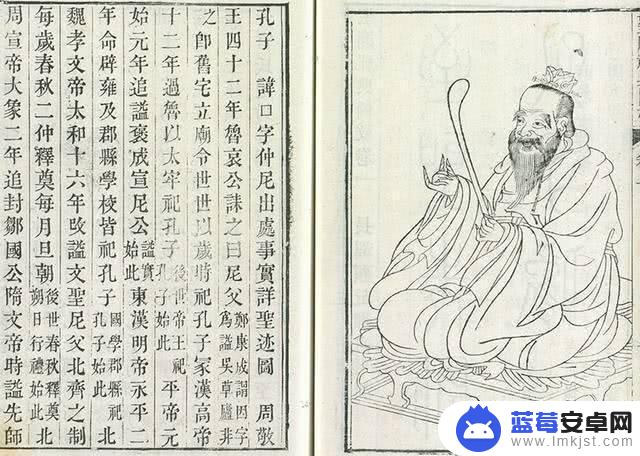 孔子　諱口字仲尼出處事實詳聖迹圖　周敬
王四十二年魯哀公誄之曰尼父鄭康成謂因字爲諡吳草廬非
之卽舊宅立廟令世世以歲時祀孔子冢漢高帝
十二年過魯以太牢祀孔子後世帝王祀孔子始此平帝元
始元年追諡褒成宣尼公諡實始此東漢明帝永平二
年命辟雍及郡縣學校皆祀孔子國學郡縣祀孔子始此北
魏孝文帝太和十六年改諡文聖尼父北齊之制
每歲春秋二仲釋奠每月旦朝後世春秋釋奠朔日行禮始此北
周宣帝大象二年追封鄒國公隋文帝時諡先師
蓝莓安卓网
www.lmkjst.com